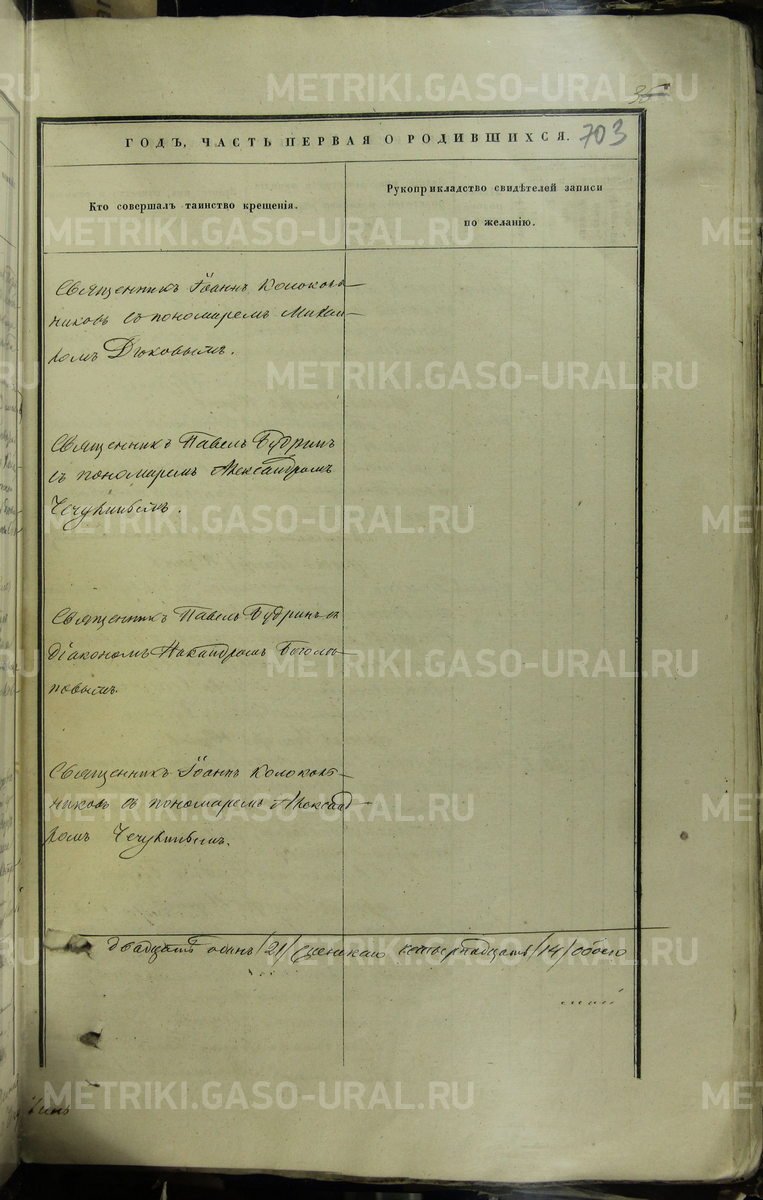 35
703
ГОДЪ, ЧАСТЬ ПЕРВАЯ О РОДИВШИХСЯ.
Кто совершалъ таинство крещенія.
Рукоприкладство свидѣтелей записи
по желанію.
Священникъ Іоаннъ Колоколь
никовъ съ пономаремъ Михаи
ломъ Дюковымъ.
Священникъ Павелъ Будринъ
съ пономаремъ Александромъ
Чечулинымъ.
Священникъ Павелъ Будринъ съ
діакономъ Никандромъ Боголѣ
повымъ.
Священникъ Іоаннъ Колоколь
никовъ съ пономаремъ Александ
ромъ Чечулинымъ.
двадцать одинъ /21/ женскаго четырнадцать /14/ обоего
METRIKI.GASO-URAL.RU